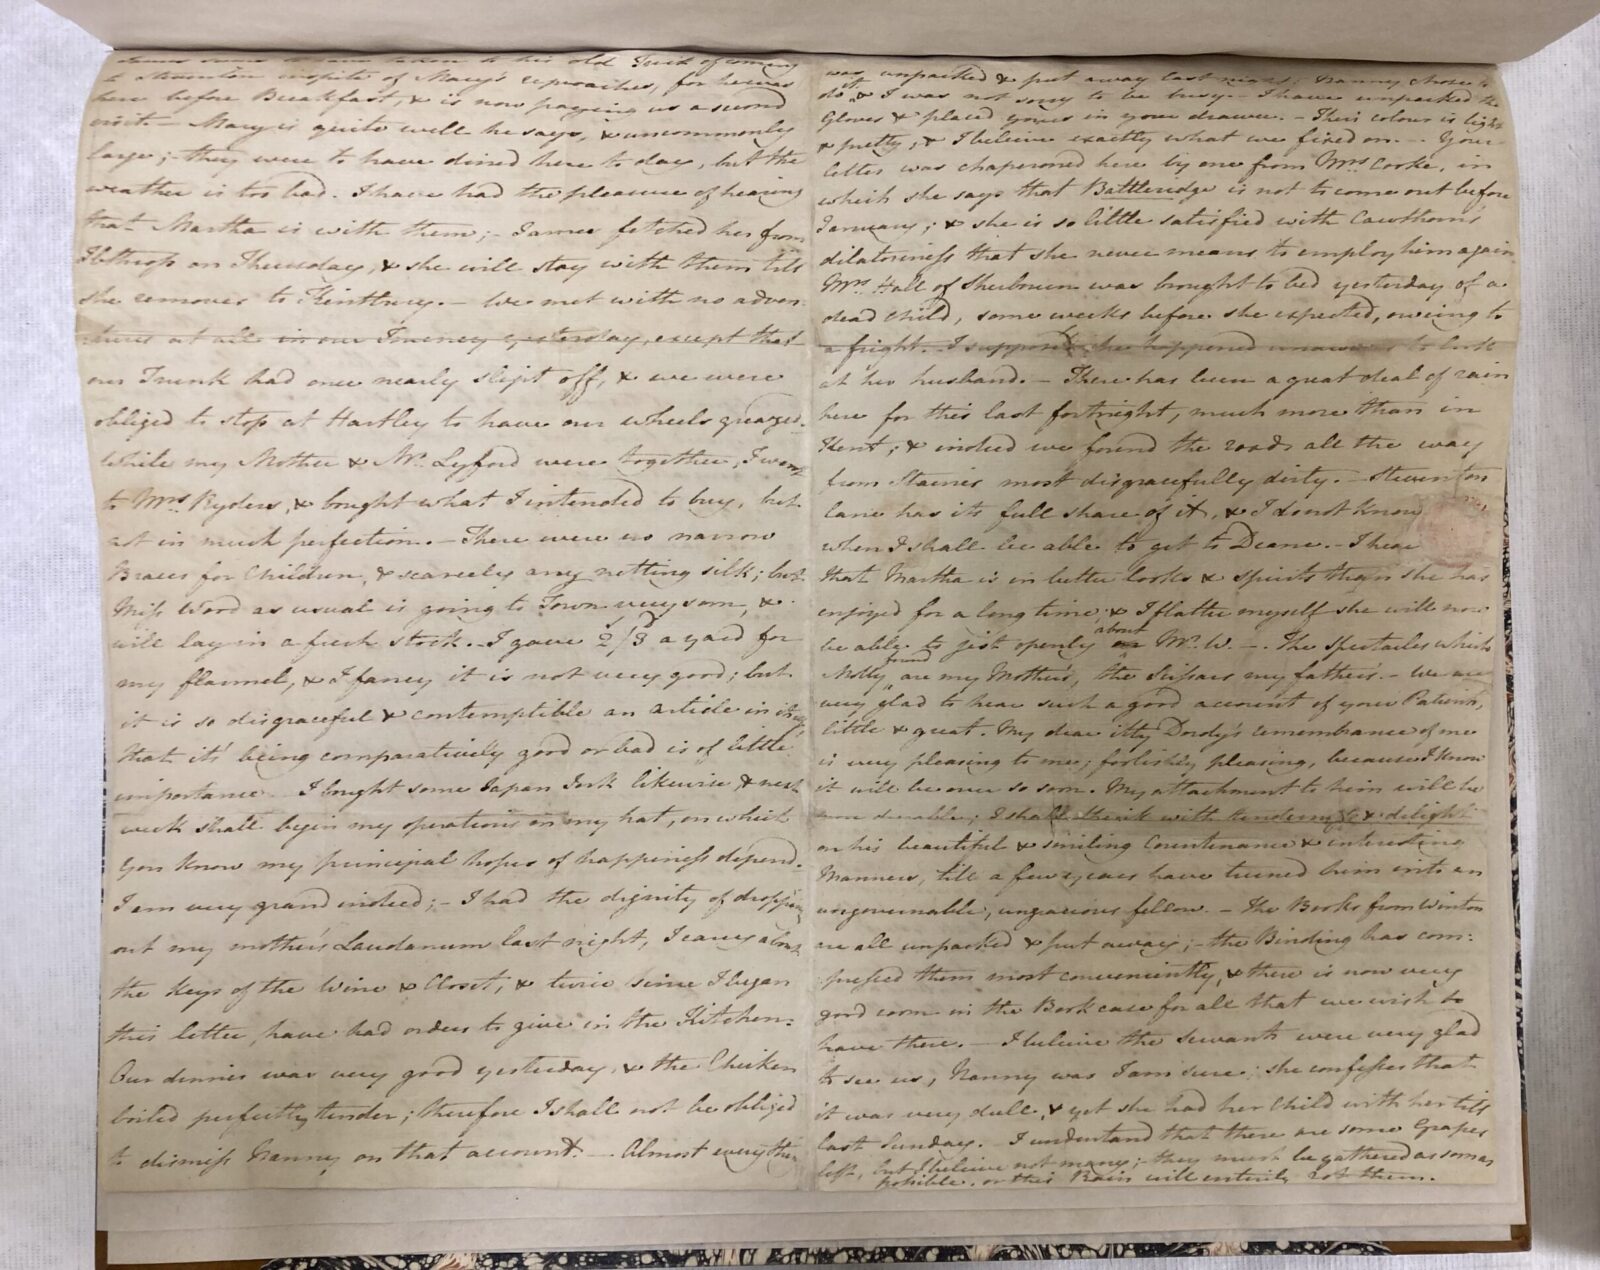 James seems to have taken to his old Trick of coming
to Steventon inspite of Mary's reproaches, for he was
here before Breakfast, & is now paying us a second
visit. — Mary is quite well he says, & uncommonly
large; — they were to have dined here to day, but the
weather is too bad. I have had the pleasure of hearing
that Martha is with them; — James fetched her from
Ibthrop on Thursday, & she will stay with them till
she removes to Kintbury. — We met with no adven:
:tures at all in our Journey yesterday, except that
our Trunk had once nearly slipt off, & we were
obliged to stop at Hartley to have our wheels greazed.
While my Mother & Mr. Lyford were together, I went
to Mrs. Ryders, & bought what I intended to buy, but
not in much perfection. — There were no narrow
Braces for Children, & scarcely any netting silk; but
Miss Wood as usual is going to Town very soon, &
will lay in a fresh stock. — I gave 2/3 a yard for
my flannel, & I fancy it is not very good; but
it is so disgraceful & contemptible an article in itself,
that it's being comparatively good or bad is of little
importance. I bought some Japan Ink likewise, & next
week shall begin my operations on my hat, on which
You know my principal hopes of happiness depend. —
I am very grand indeed; — I had the dignity of dropping
out my mother's Laudanum last night, I carry about
the keys of the Wine & Closet; & twice since I began
this letter, have had orders to give in the Kitchen:
Our dinner was very good yesterday, & the Chicken
boiled perfectly tender; therefore I shall not be obliged
to dismiss Nanny on that account. — Almost everything
was unpacked & put away last night; Nanny chose to
do it, & I was not sorry to be busy. — I have unpacked the
Gloves & placed yours in your drawer. — Their colour is light
& pretty, & I believe exactly what we fixed on. — Your
letter was chaperoned here by one from Mrs. Cooke, in
which she says that Battleridge is not to come out before
January; & she is so little satisfied with Cawthorn's
dilatoriness that she never means to employ him again.
Mrs. Hall of Sherbourn was brought to bed yesterday of a
dead child, some weeks before she expected, oweing to
a fright. — I suppose she happened unawares to look
at her husband. — There has been a great deal of rain
here for this last fortnight, much more than in
Kent; & indeed we found the roads all the way
from Staines most disgracefully dirty. — Steventon
lane has its full share of it, & I do not know
when I shall be able to get to Deane. — I hear
that Martha is in better looks & spirits than she has
enjoyed for a long time; & I flatter myself she will now
be able to jest openly about Mr. W. —. The Spectacles which
Molly found are my Mother's, the Scissars my father's. — We are
very glad to hear such a good account of your Patients,
little & great. My dear itty Dordy's remembrance of me
is very pleasing to me; foolishly pleasing, because I know
it will be over so soon. My attachment to him will be
more durable; I shall think with tenderness & delight
on his beautiful & smiling Countenance & interesting
Manners, till a few years have turned him into an
ungovernable, ungracious fellow. — The Books from Winton
are all unpacked & put away; — the Binding has com:
:pressed them most conveniently, & there is now very
good room in the Bookcase for all that we wish to
have there. — I believe the Servants were very glad
to see us, Nanny was I am sure; she confesses that
it was very dull, & yet she had her Child with her till
last Sunday. — I understand that there are some Grapes
left, but I believe not many; — they must be gathered as soon as
possible, or this Rain will entirely rot them.